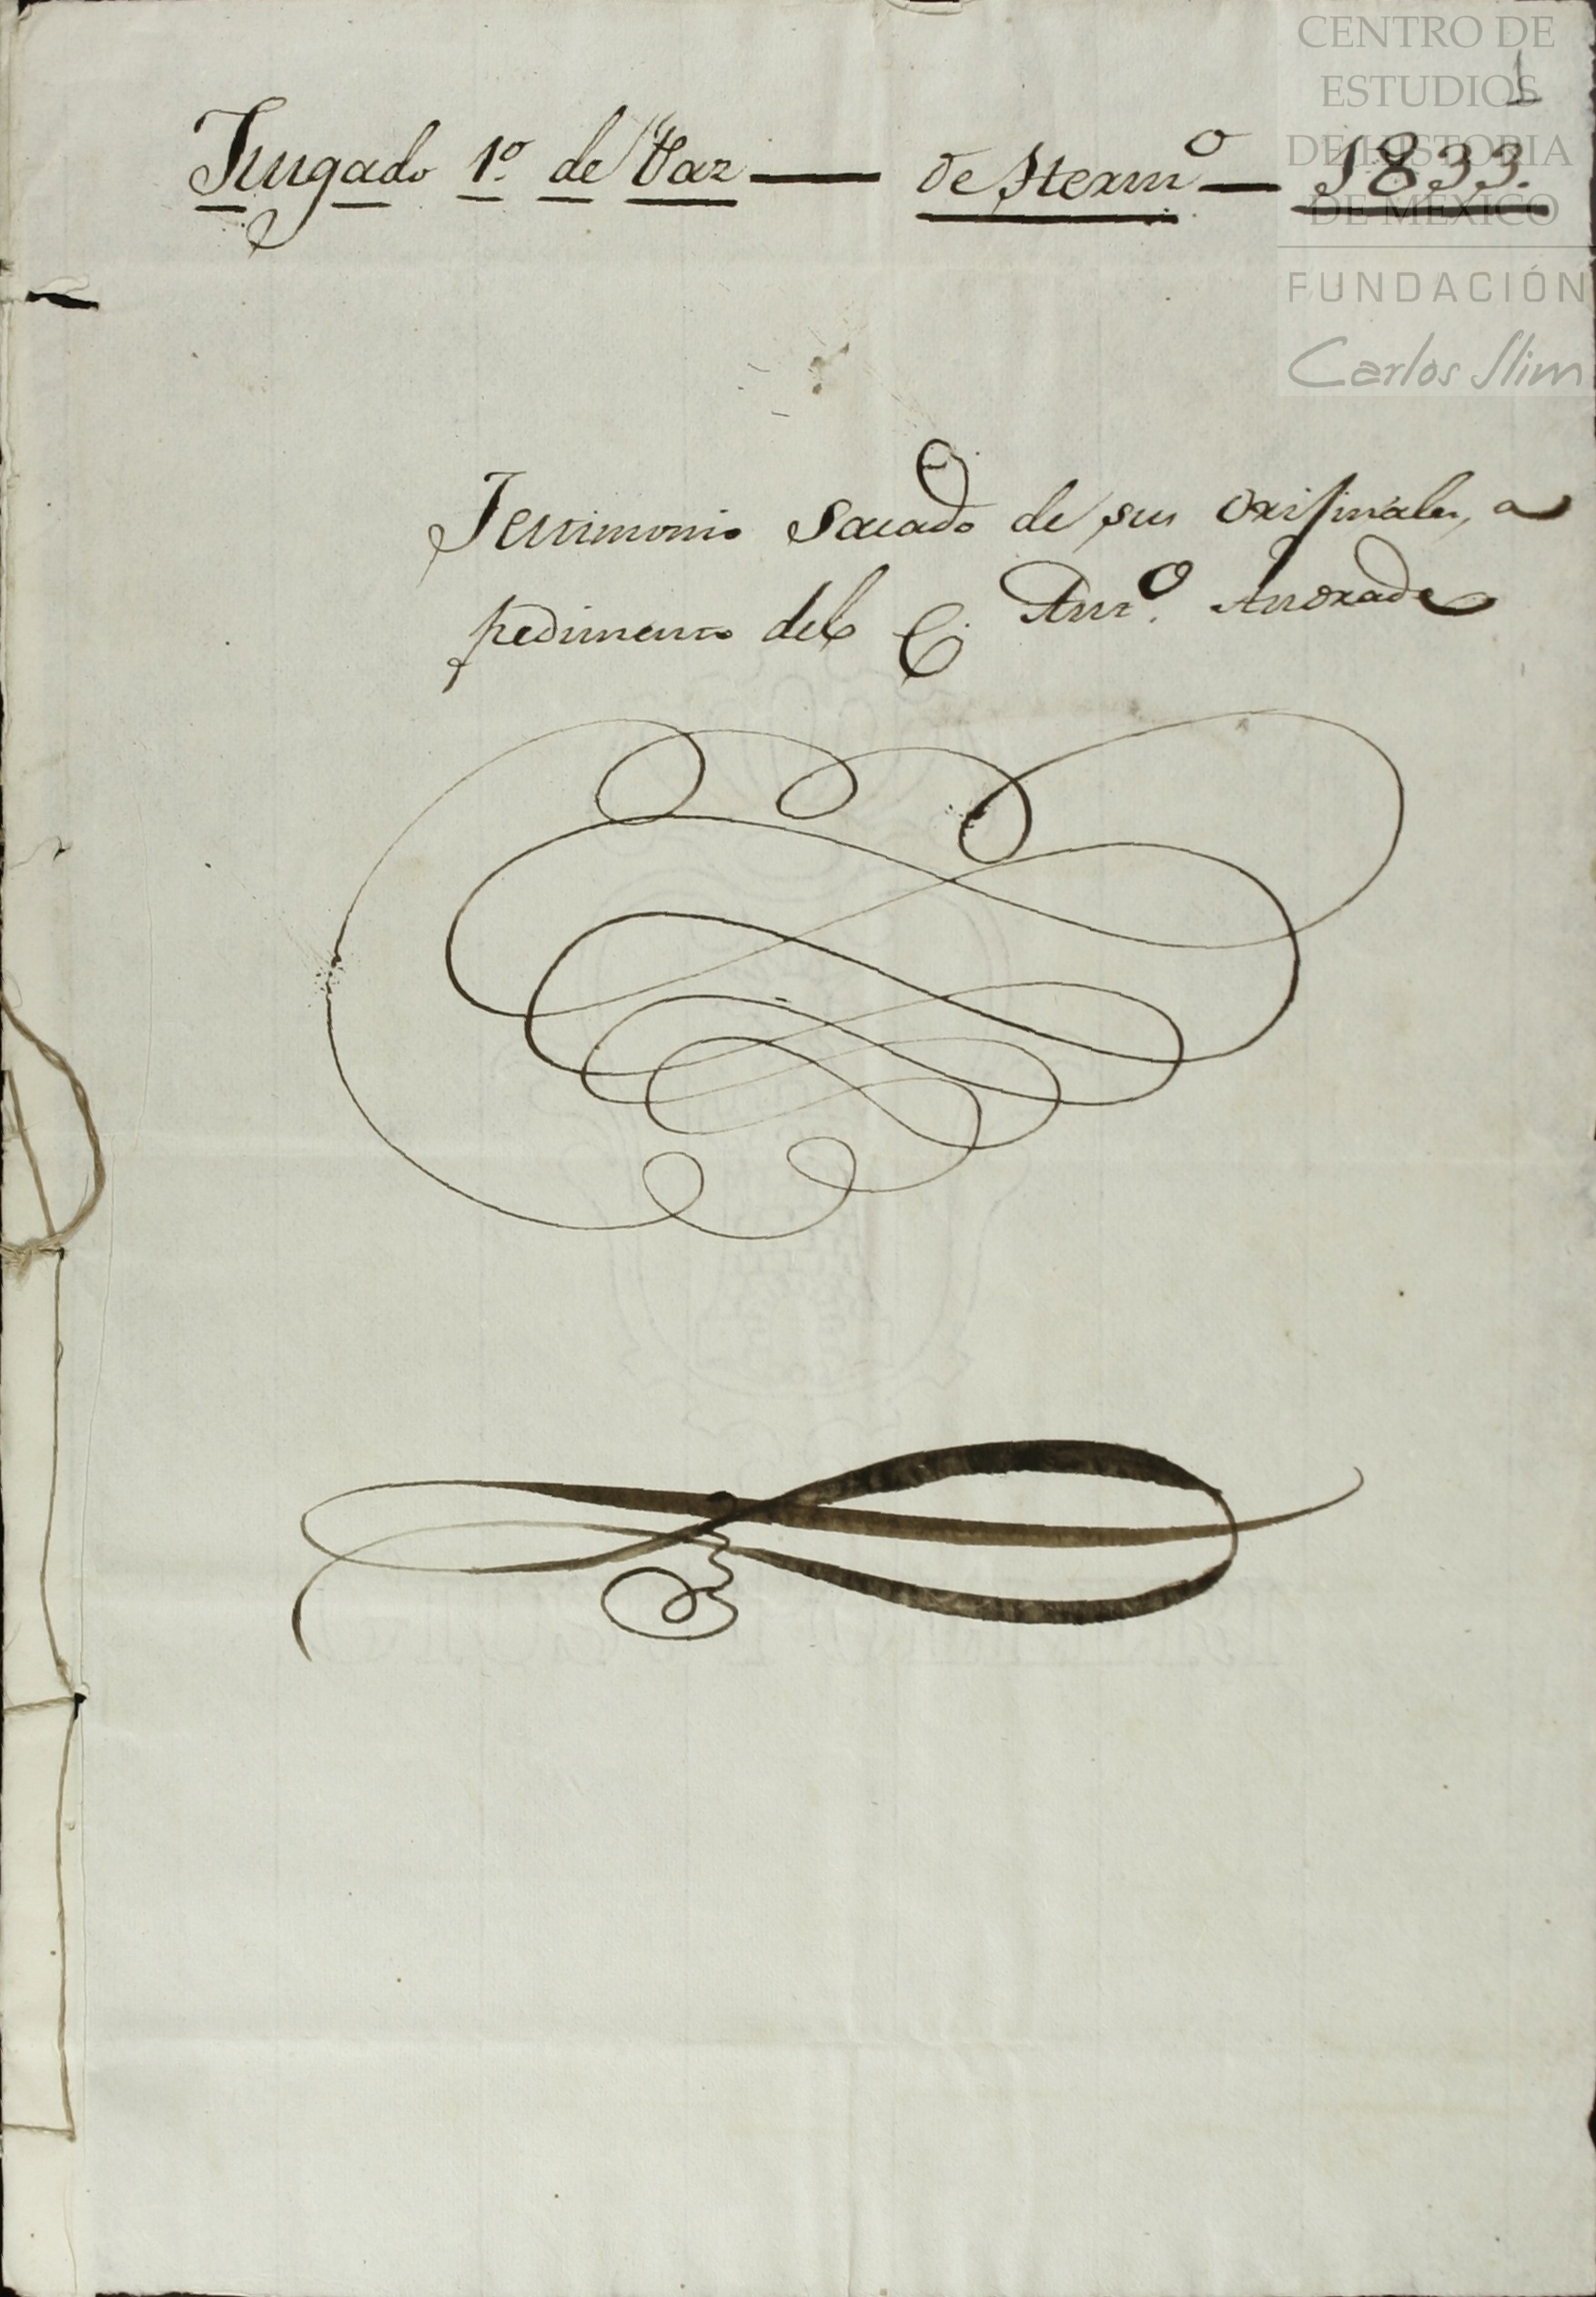 CENTRO DE
ESTUDIOS
DE HISTORIA
DE MÉXICO
FUNDACIÓN
Carlos Slim
1
Jusgado 1º de Paz — de Herm.º — 1833.
Testimonio Sacado de sus originales, a
pedimento del C. Antº. Andrade